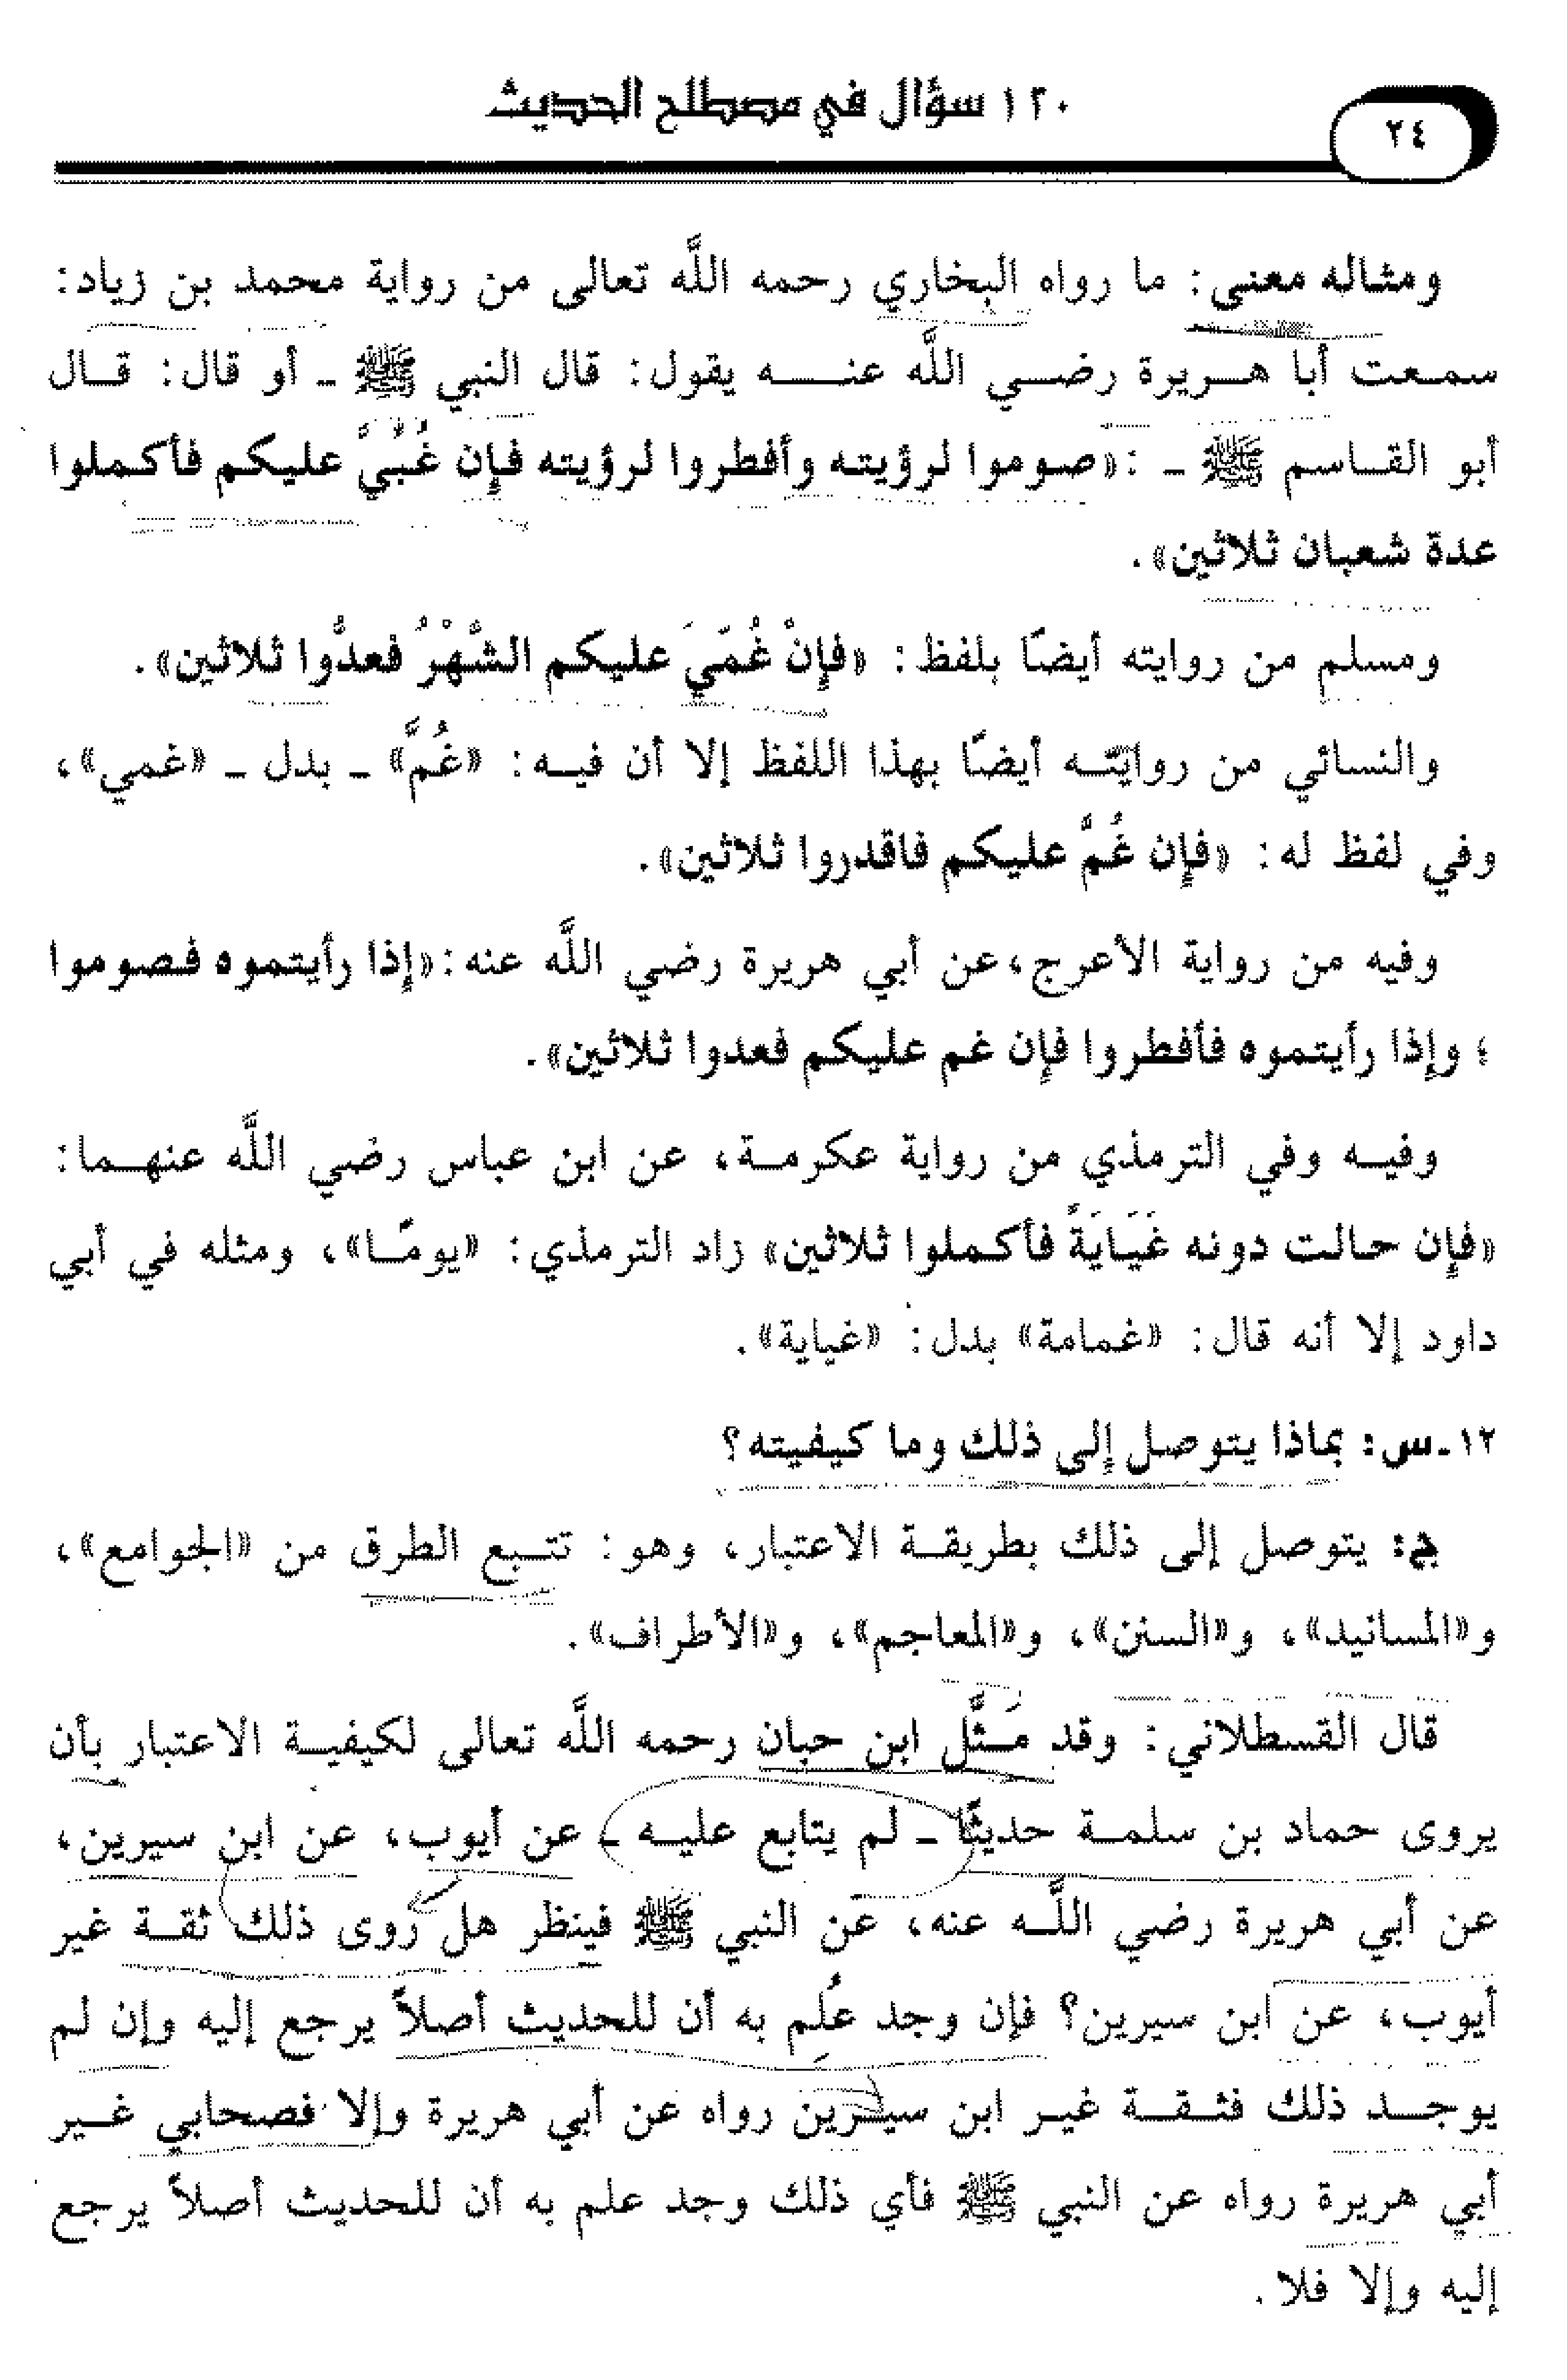 ١٢٠ سؤال في مصطلح الحديث
٢٤
ومثاله معنى: ما رواه البخاري رحمه اللَّه تعالى من رواية محمد بن زياد:
سمعت أبا هريرة رضي اللَّه عنه يقول: قال النبي ﷺ ـ أو قال: قال
أبو القاسم ﷺ ـ : «صوموا لرؤيته وأفطروا لرؤيته فإن غُبِّيَ عليكم فأكملوا
عدة شعبان ثلاثين».
ومسلم من روايته أيضًا بلفظ: «فإنْ غُمِّيَ عليكم الشَّهْرُ فعدُّوا ثلاثين».
والنسائي من روايته أيضًا بهذا اللفظ إلا أن فيه: «غُمَّ» ـ بدل ـ «غمي»،
وفي لفظ له: «فإن غُمَّ عليكم فاقدروا ثلاثين».
وفيه من رواية الأعرج، عن أبي هريرة رضي اللَّه عنه: «إذا رأيتموه فصوموا
؛ وإذا رأيتموه فأفطروا فإن غم عليكم فعدوا ثلاثين».
وفيه وفي الترمذي من رواية عكرمة، عن ابن عباس رضي اللَّه عنهما:
«فإن حالت دونه غَيَايَةً فأكملوا ثلاثين» زاد الترمذي: «يومًا»، ومثله في أبي
داود إلا أنه قال: «غمامة» بدل: «غياية».
١٢ـ س: بماذا يتوصل إلى ذلك وما كيفيته؟
ج: يتوصل إلى ذلك بطريقة الاعتبار، وهو: تتبع الطرق من «الجوامع»،
و«المسانيد»، و«السنن»، و«المعاجم»، و«الأطراف».
قال القسطلاني: وقد مَثَّل ابن حبان رحمه اللَّه تعالى لكيفية الاعتبار بأن
يروى حماد بن سلمة حديثًا ـ لم يتابع عليه ـ عن أيوب، عن ابن سيرين،
عن أبي هريرة رضي اللَّه عنه، عن النبي ﷺ فينظر هل روى ذلك ثقة غير
أيوب، عن ابن سيرين؟ فإن وجد عُلِم به أن للحديث أصلاً يرجع إليه وإن لم
يوجد ذلك فثقة غير ابن سيرين رواه عن أبي هريرة وإلا فصحابي غير
أبي هريرة رواه عن النبي ﷺ فأي ذلك وجد علم به أن للحديث أصلاً يرجع
إليه وإلا فلا.